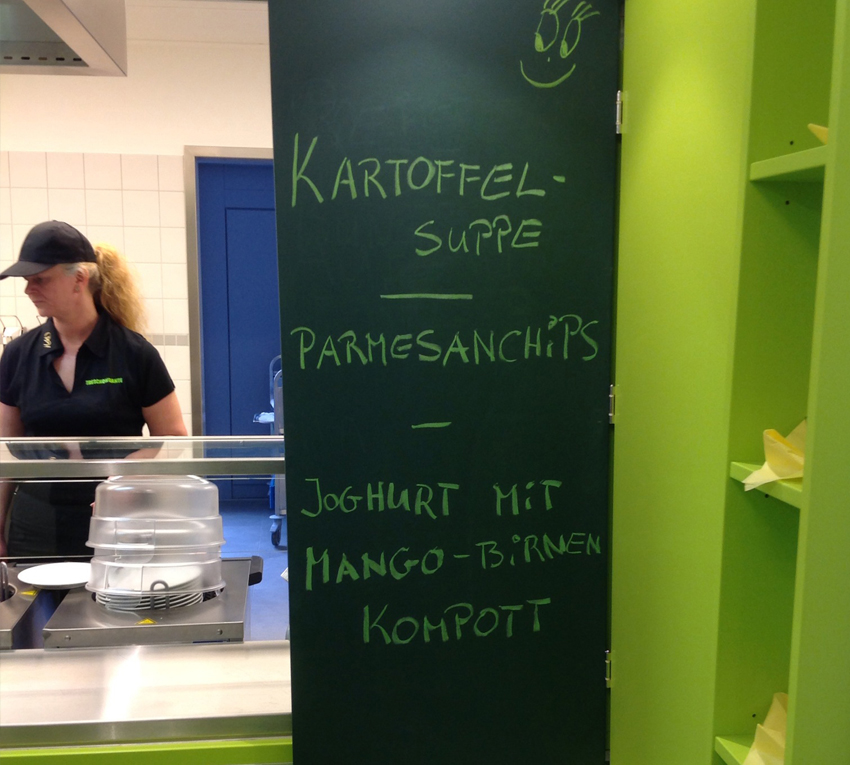 KARTOFFEL-
SUPPE
PARMESANCHiPS
JOGHURT MiT
MANGO-BiRNEN
KOMPOTT